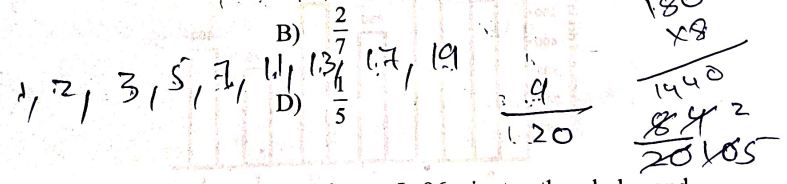 B) 2/7
1, 2, 3, 5, 7, 11, 13, 17, 19
D) 1/5
9
120
180
x8
1440
842
20105